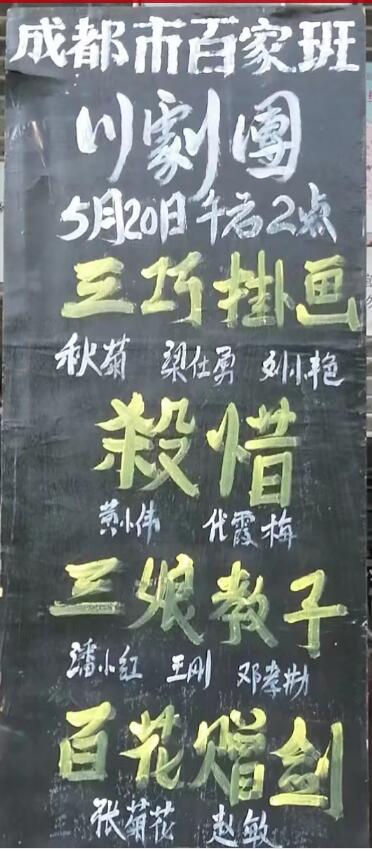 成都市百家班
川劇團
5月20日午后2点
三巧掛画
秋菊 梁仕勇 刘小艳
殺惜
黄小伟 代霞梅
三娘教子
潘小红 王刚 邓孝勋
百花赠剑
张菊花 赵敏